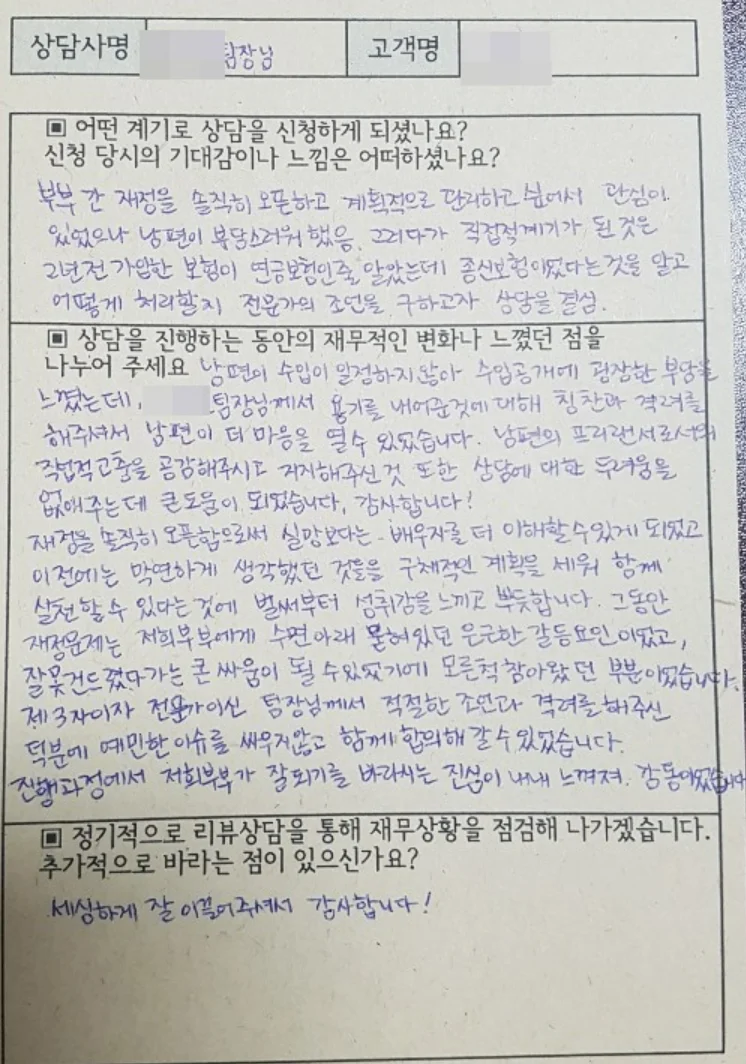 상담사명 팀장님 고객명
▣ 어떤 계기로 상담을 신청하게 되셨나요?
신청 당시의 기대감이나 느낌은 어떠하셨나요?
부부 간 재정을 솔직히 오픈하고 계획적으로 관리하고 싶어서 관심이
있었으나 남편이 부담스러워 했음. 그러다가 직접적계기가 된 것은
2년전 가입한 보험이 연금보험인줄 알았는데 종신보험이었다는 것을 알고
어떻게 처리할지 전문가의 조언을 구하고자 상담을 결심.
▣ 상담을 진행하는 동안의 재무적인 변화나 느꼈던 점을
나누어 주세요 남편의 수입이 일정하지 않아 수입공개에 굉장한 부담을
느꼈는데, 팀장님께서 용기를 내어준것에 대해 칭찬과 격려를
해주셔서 남편이 더 마음을 열 수 있었습니다. 남편의 프리랜서로서의
직업적고충을 공감해주시고 지지해주신 것 또한 상담에 대한 두려움을
없애주는데 큰 도움이 되었습니다. 감사합니다!
재정을 솔직히 오픈함으로써 실망보다는 배우자를 더 이해할 수 있게 되었고
이전에는 막연하게 생각했던 것들을 구체적인 계획을 세워 함께
실천 할 수 있다는 것에 벌써부터 성취감을 느끼고 뿌듯합니다. 그동안
재정문제는 저희부부에게 수면 아래 묻혀있던 은근한 갈등요인이었고,
잘못건드렸다가는 큰 싸움이 될 수 있었기에 모른척 참아왔던 부분이었습니다.
제3자이자 전문가이신 팀장님께서 적절한 조언과 격려를 해주신
덕분에 예민한 이슈를 싸우지않고 함께 합의해 갈 수 있었습니다.
진행과정에서 저희부부가 잘 되기를 바라시는 진심이 내내 느껴져 감동이었습니다
▣ 정기적으로 리뷰상담을 통해 재무상황을 점검해 나가겠습니다.
추가적으로 바라는 점이 있으신가요?
세심하게 잘 이끌어주셔서 감사합니다!